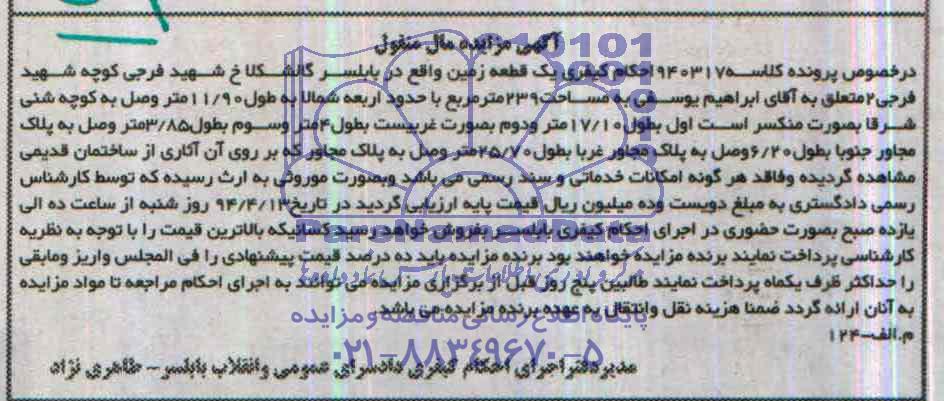 آگهی مزایده مال منقول
درخصوص پرونده کلاسه ۹۴۰۳۱۷ احکام کیفری یک قطعه زمین واقع در بابلسر گالشکلا خ شهید فرجی کوچه شهید
فرجی۲ متعلق به آقای ابراهیم یوسفی به مساحت ۲۳۹ مترمربع با حدود اربعه شمالا به طول ۱۱/۹۰ متر وصل به کوچه شنی
شرقا بصورت منکسر است اول بطول ۱۷/۱۰ متر ودوم بصورت غربیست بطول ۴ متر وسوم بطول ۳/۸۵ متر وصل به پلاک
مجاور جنوبا بطول ۶/۲۰ وصل به پلاک مجاور غربا بطول ۲۵/۷۰ متر وصل به پلاک مجاور که بر روی آن آثاری از ساختمان قدیمی
مشاهده گردیده وفاقد هر گونه امکانات خدماتی و سند رسمی می باشد وبصورت موروثی به ارث رسیده که توسط کارشناس
رسمی دادگستری به مبلغ دویست وده میلیون ریال قیمت پایه ارزیابی گردید در تاریخ ۹۴/۴/۱۳ روز شنبه از ساعت ده الی
یازده صبح بصورت حضوری در اجرای احکام کیفری بابلسر بفروش خواهد رسید کسانیکه بالاترین قیمت را با توجه به نظریه
کارشناسی پرداخت نمایند برنده مزایده خواهند بود برنده مزایده باید ده درصد قیمت پیشنهادی را فی المجلس واریز ومابقی
را حداکثر ظرف یکماه پرداخت نمایند طالبین پنج روز قبل از برگزاری مزایده می توانند به اجرای احکام مراجعه تا مواد مزایده
به آنان ارائه گردد ضمنا هزینه نقل وانتقال به عهده برنده مزایده می باشد
م.الف-۱۲۴
مدیر دفتر اجرای احکام کیفری دادسرای عمومی وانقلاب بابلسر - طاهری نژاد
ParsNamadData
پایگاه اطلاع رسانی مناقصه و مزایده
۰۲۱-۸۸۳۴۹۶۷۰-۵